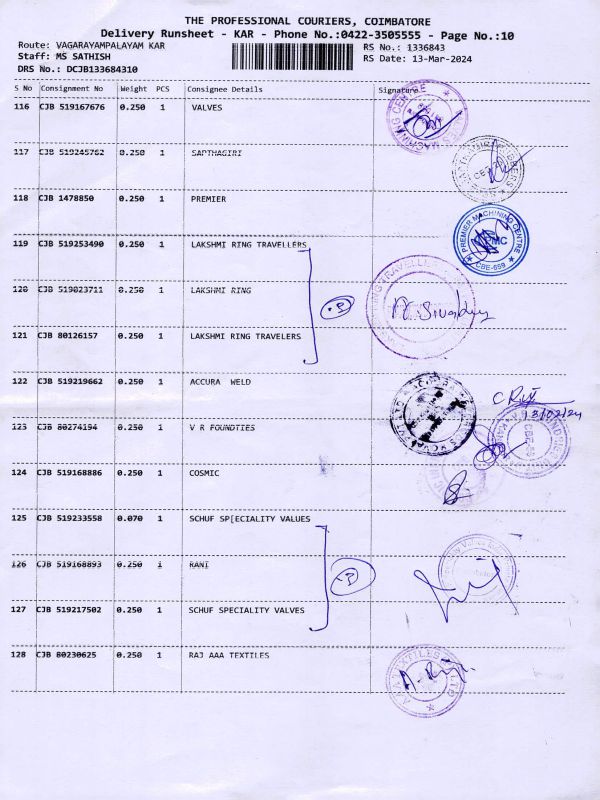 THE PROFESSIONAL COURIERS, COIMBATORE
Delivery Runsheet - KAR - Phone No.:0422-3505555 - Page No.:10
Route: VAGARAYAMPALAYAM KAR RS No.: 1336843
Staff: MS SATHISH RS Date: 13-Mar-2024
DRS No.: DCJB133684310
S No Consignment No Weight PCS Consignee Details Signature
116 CJB 519167676 0.250 1 VALVES
117 CJB 519245762 0.250 1 SAPTHAGIRI
118 CJB 1478850 0.250 1 PREMIER
PREMIER MACHINING CENTRE
PMC
CBE-659
119 CJB 519253490 0.250 1 LAKSHMI RING TRAVELLERS
120 CJB 519023711 0.250 1 LAKSHMI RING
121 CJB 80126157 0.250 1 LAKSHMI RING TRAVELERS
122 CJB 519219662 0.250 1 ACCURA WELD
13/02/24
123 CJB 80274194 0.250 1 V R FOUNDTIES
124 CJB 519168886 0.250 1 COSMIC
125 CJB 519233558 0.070 1 SCHUF SP[ECIALITY VALUES
126 CJB 519168893 0.250 1 RANI
127 CJB 519217502 0.250 1 SCHUF SPECIALITY VALVES
128 CJB 80230625 0.250 1 RAJ AAA TEXTILES